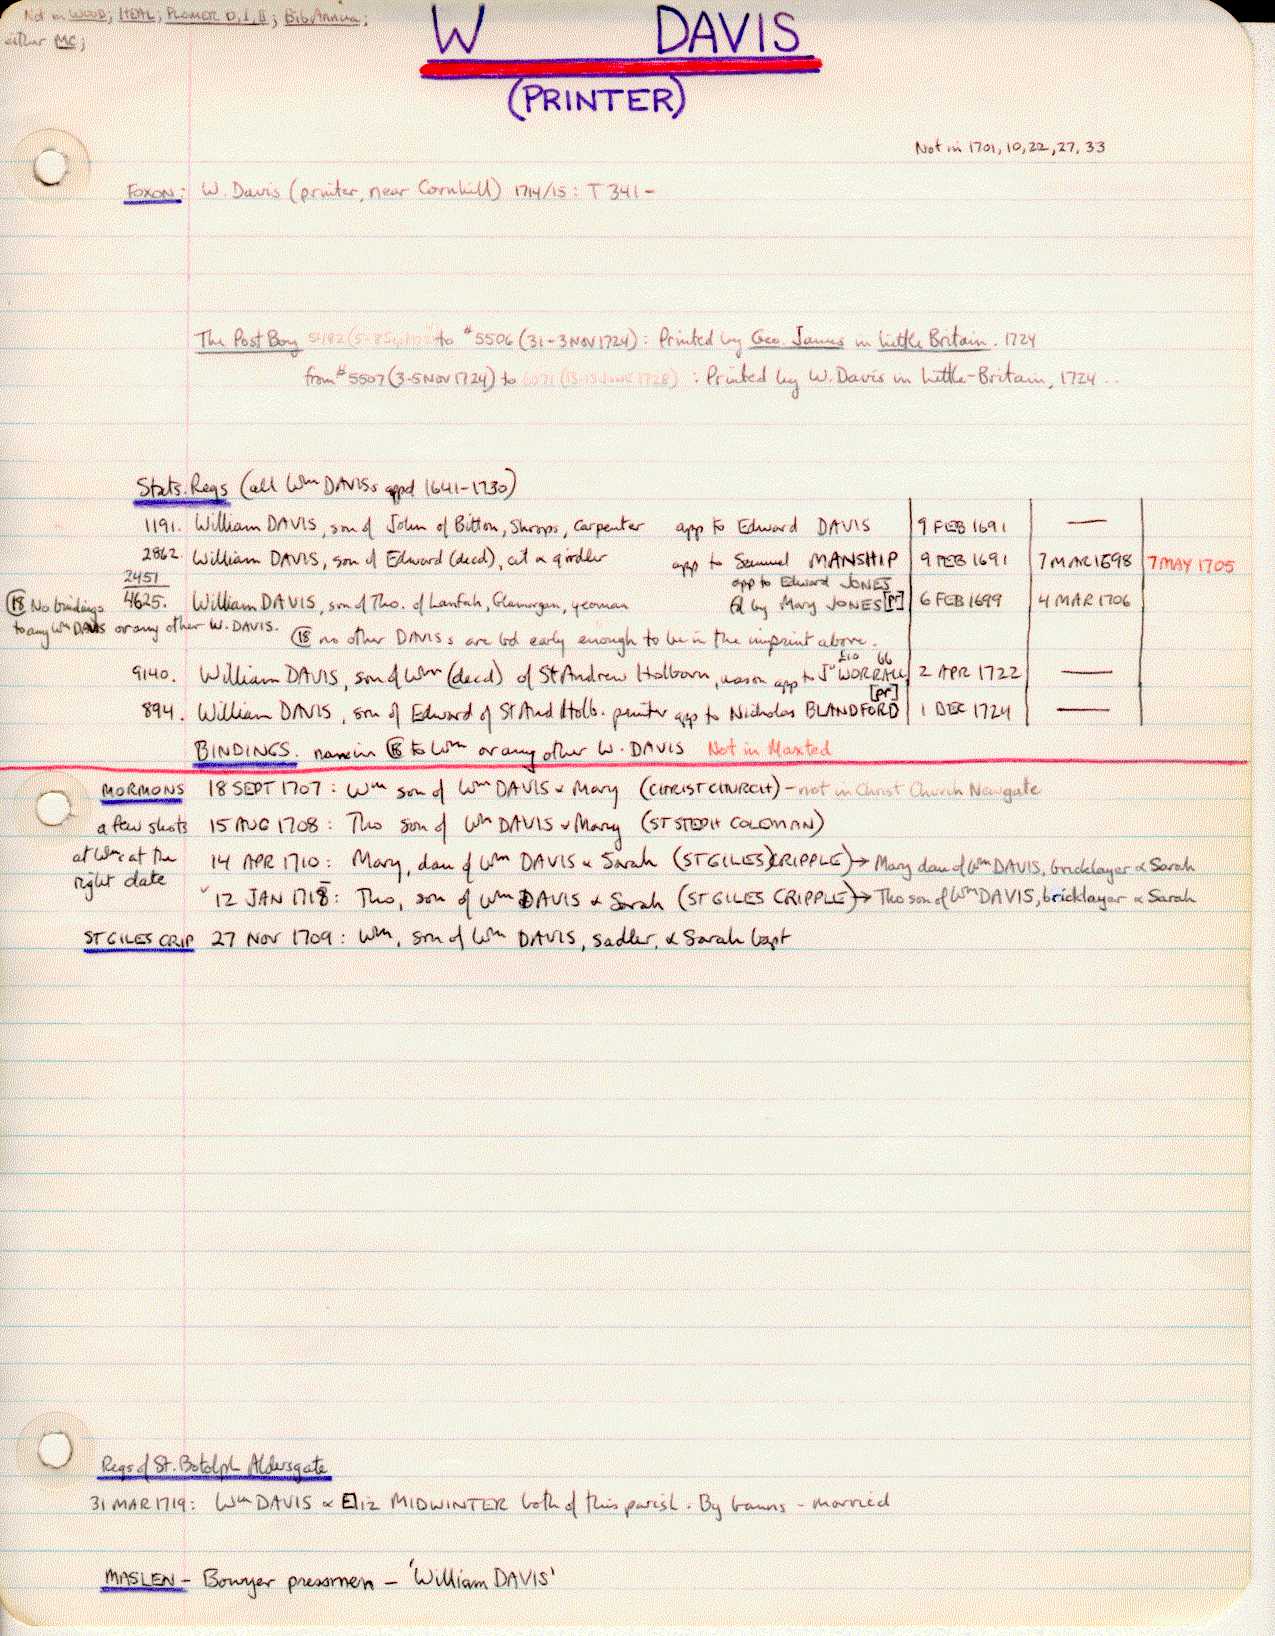 Not in WOOD; HEAL; PLOMER D, I, II; BibAnnua;
either MC;
W DAVIS
(PRINTER)
Not in 1701, 10, 22, 27, 33
FOXON: W. Davis (printer, near Cornhill) 1714/15: T 341-
The Post Boy to #5506 (31-3 NOV 1724): Printed by Geo. James in Little Britain. 1724
from #5507 (3-5 NOV 1724) to 6071 (13-15 JUNE 1728) : Printed by W. Davis in Little-Britain, 1724 ..
Stats. Regs (all Wm DAVISs appd 1641-1730)
1191. William DAVIS, son of John of Bitton, Shrops, carpenter app to Edward DAVIS 9 FEB 1691 —
2862. William DAVIS, son of Edward (decd), cit & girdler app to Samuel MANSHIP 9 FEB 1691 7 MAR 1698 7 MAY 1705
2451 app to Edward JONES
4625. William DAVIS, son of Tho. of Lanfah, Glamorgan, yeoman fd by Mary JONES [pr] 6 FEB 1699 4 MAR 1706
18 No bindings
to any Wm DAVIS or any other W. DAVIS.
18 no other DAVISs are bd early enough to be in the imprint above.
£10 66
9140. William DAVIS, son of Wm (decd) of St Andrew Holborn, mason app to Jn WORRALL 2 APR 1722 —
[pr]
894. William DAVIS, son of Edward of St And Holb. printer app to Nicholas BLANDFORD 1 DEC 1724 —
BINDINGS. none in 18 to Wm or any other W. DAVIS Not in Maxted
MORMONS 18 SEPT 1707: Wm son of Wm DAVIS & Mary (CHRISTCHURCH) - not in Christ Church Newgate
a few shots 15 AUG 1708: Tho son of Wm DAVIS & Mary (ST STEPH COLEMAN)
at Wms at the 14 APR 1710: Mary, dau of Wm DAVIS & Sarah (ST GILES CRIPPLE) → Mary dau of Wm DAVIS, bricklayer & Sarah
right date 12 JAN 1718: Tho, son of Wm DAVIS & Sarah (ST GILES CRIPPLE) → Tho son of Wm DAVIS, bricklayer & Sarah
ST GILES CRIP 27 NOV 1709: Wm, son of Wm DAVIS, sadler, & Sarah bapt
Regs of St. Botolph Aldersgate
31 MAR 1719: Wm DAVIS & Eliz MIDWINTER both of this parish. By banns - married
MASLEN - Bowyer pressmen - 'William DAVIS'